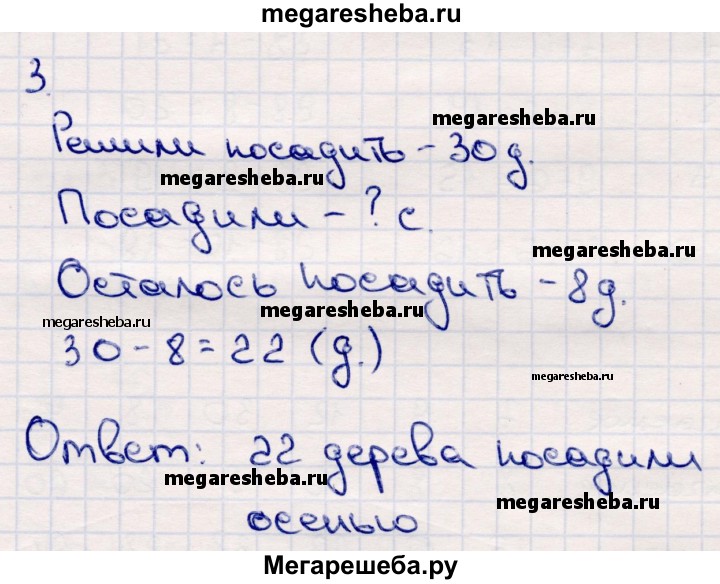 megaresheba.ru
3.
megaresheba.ru
Решили посадить - 30 д.
megaresheba.ru
Посадили - ? с.
megaresheba.ru
Осталось посадить - 8 д.
megaresheba.ru
megaresheba.ru
30 - 8 = 22 (д.)
megaresheba.ru
Ответ: 22 дерева посадили
megaresheba.ru
megaresheba.ru
осенью
Мегарешеба.ру